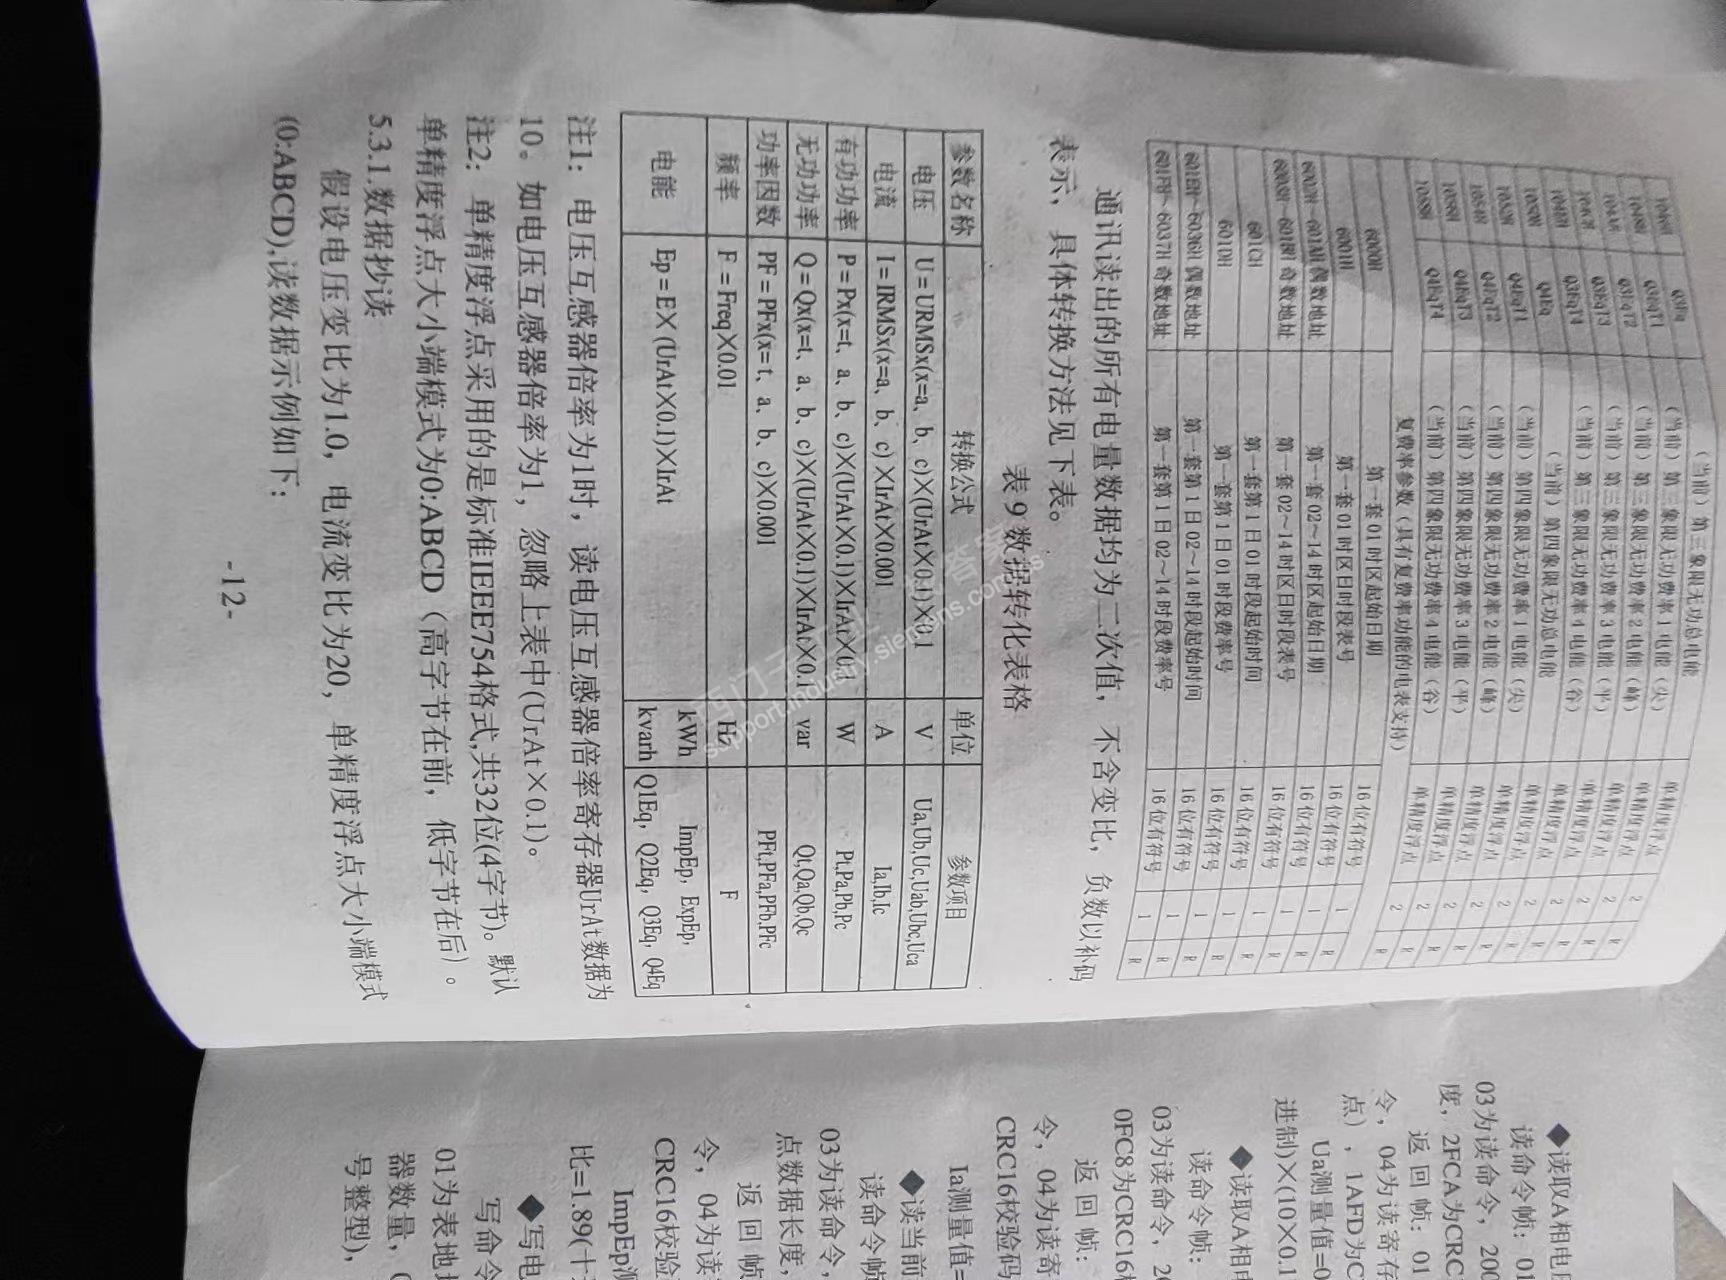 （当前）第三象限无功总电能
1046H Q3Eq （当前）第三象限无功费率1电能（尖） 单精度浮点
1048H Q3EqT1 （当前）第三象限无功费率2电能（峰） 单精度浮点 2
104AH Q3EqT2 （当前）第三象限无功费率3电能（平） 单精度浮点 2 R
104CH Q3EqT3 （当前）第三象限无功费率4电能（谷） 单精度浮点 2 R
Q3EqT4 （当前）第四象限无功总电能 单精度浮点 2 R
1050H Q4Eq （当前）第四象限无功费率1电能（尖） 单精度浮点 2 R
1052H Q4EqT1 （当前）第四象限无功费率2电能（峰） 单精度浮点 2 R
1054H Q4EqT2 （当前）第四象限无功费率3电能（平） 单精度浮点 2 R
1056H Q4EqT3 （当前）第四象限无功费率4电能（谷） 单精度浮点 2 R
1058H Q4EqT4
复费率参数（具有复费率功能的电表支持）
6000H 第一套01时区起始日期 16位有符号 1 R
6001H 第一套01时区日时段表号 16位有符号 1 R
6002H~601AH偶数地址 第一套02~14时区起始日期 16位有符号 1 R
6003H~601BH奇数地址 第一套02~14时区日时段表号 16位有符号 1 R
601CH 第一套第1日01时段起始时间 16位有符号 1 R
601DH 第一套第1日01时段费率号 16位有符号 1 R
601EH~6036H偶数地址 第一套第1日02~14时段起始时间 16位有符号 1 R
601FH~6037H奇数地址 第一套第1日02~14时段费率号 16位有符号 1 R
通讯读出的所有电量数据均为二次值，不含变比，负数以补码
表示，具体转换方法见下表。
表9 数据转化表格
参数名称 转换公式 单位 参数项目
电压 U=URMSx(x=a、b、c)×(UrAt×0.1)×0.1 V Ua,Ub,Uc,Uab,Ubc,Uca
电流 I=IRMSx(x=a、b、c)×IrAt×0.001 A Ia,Ib,Ic
有功功率 P=Px(x=t、a、b、c)×(UrAt×0.1)×IrAt×0.1 W Pt,Pa,Pb,Pc
无功功率 Q=Qx(x=t、a、b、c)×(UrAt×0.1)×IrAt×0.1 var Qt,Qa,Qb,Qc
功率因数 PF=PFx(x=t、a、b、c)×0.001 PFt,PFa,PFb,PFc
频率 F=Freq×0.01 Hz F
电能 Ep=EX×(UrAt×0.1)×IrAt kWh ImpEp，ExpEp，
kvarh Q1Eq，Q2Eq，Q3Eq，Q4Eq
注1：电压互感器倍率为1时，读电压互感器倍率寄存器UrAt数据为
10。如电压互感器倍率为1，忽略上表中(UrAt×0.1)。
注2：单精度浮点采用的是标准IEEE754格式,共32位(4字节)。默认
单精度浮点大小端模式为0:ABCD（高字节在前，低字节在后）。
5.3.1.数据抄读
假设电压变比为1.0，电流变比为20，单精度浮点大小端模式
(0:ABCD),读数据示例如下：
-12-
◆读取A相电
读命令帧：01
03为读命令，200
度，2FCA为CRC
返回帧：01
令，04为读寄存
点），1AFD为C
Ua测量值=0
进制)×(10×0.1
◆读取A相电
读命令帧：
03为读命令，20
0FC8为CRC16
返回帧：
令，04为读寄
CRC16校验码
Ia测量值=
◆读当前
读命令帧
03为读命令，
点数据长度，
返回帧
令，04为读
CRC16校验
ImpEp测
比=1.89(十
◆写电
写命令
01为表地
器数量，0
号整型)，
support.industry.siemens.com/cs